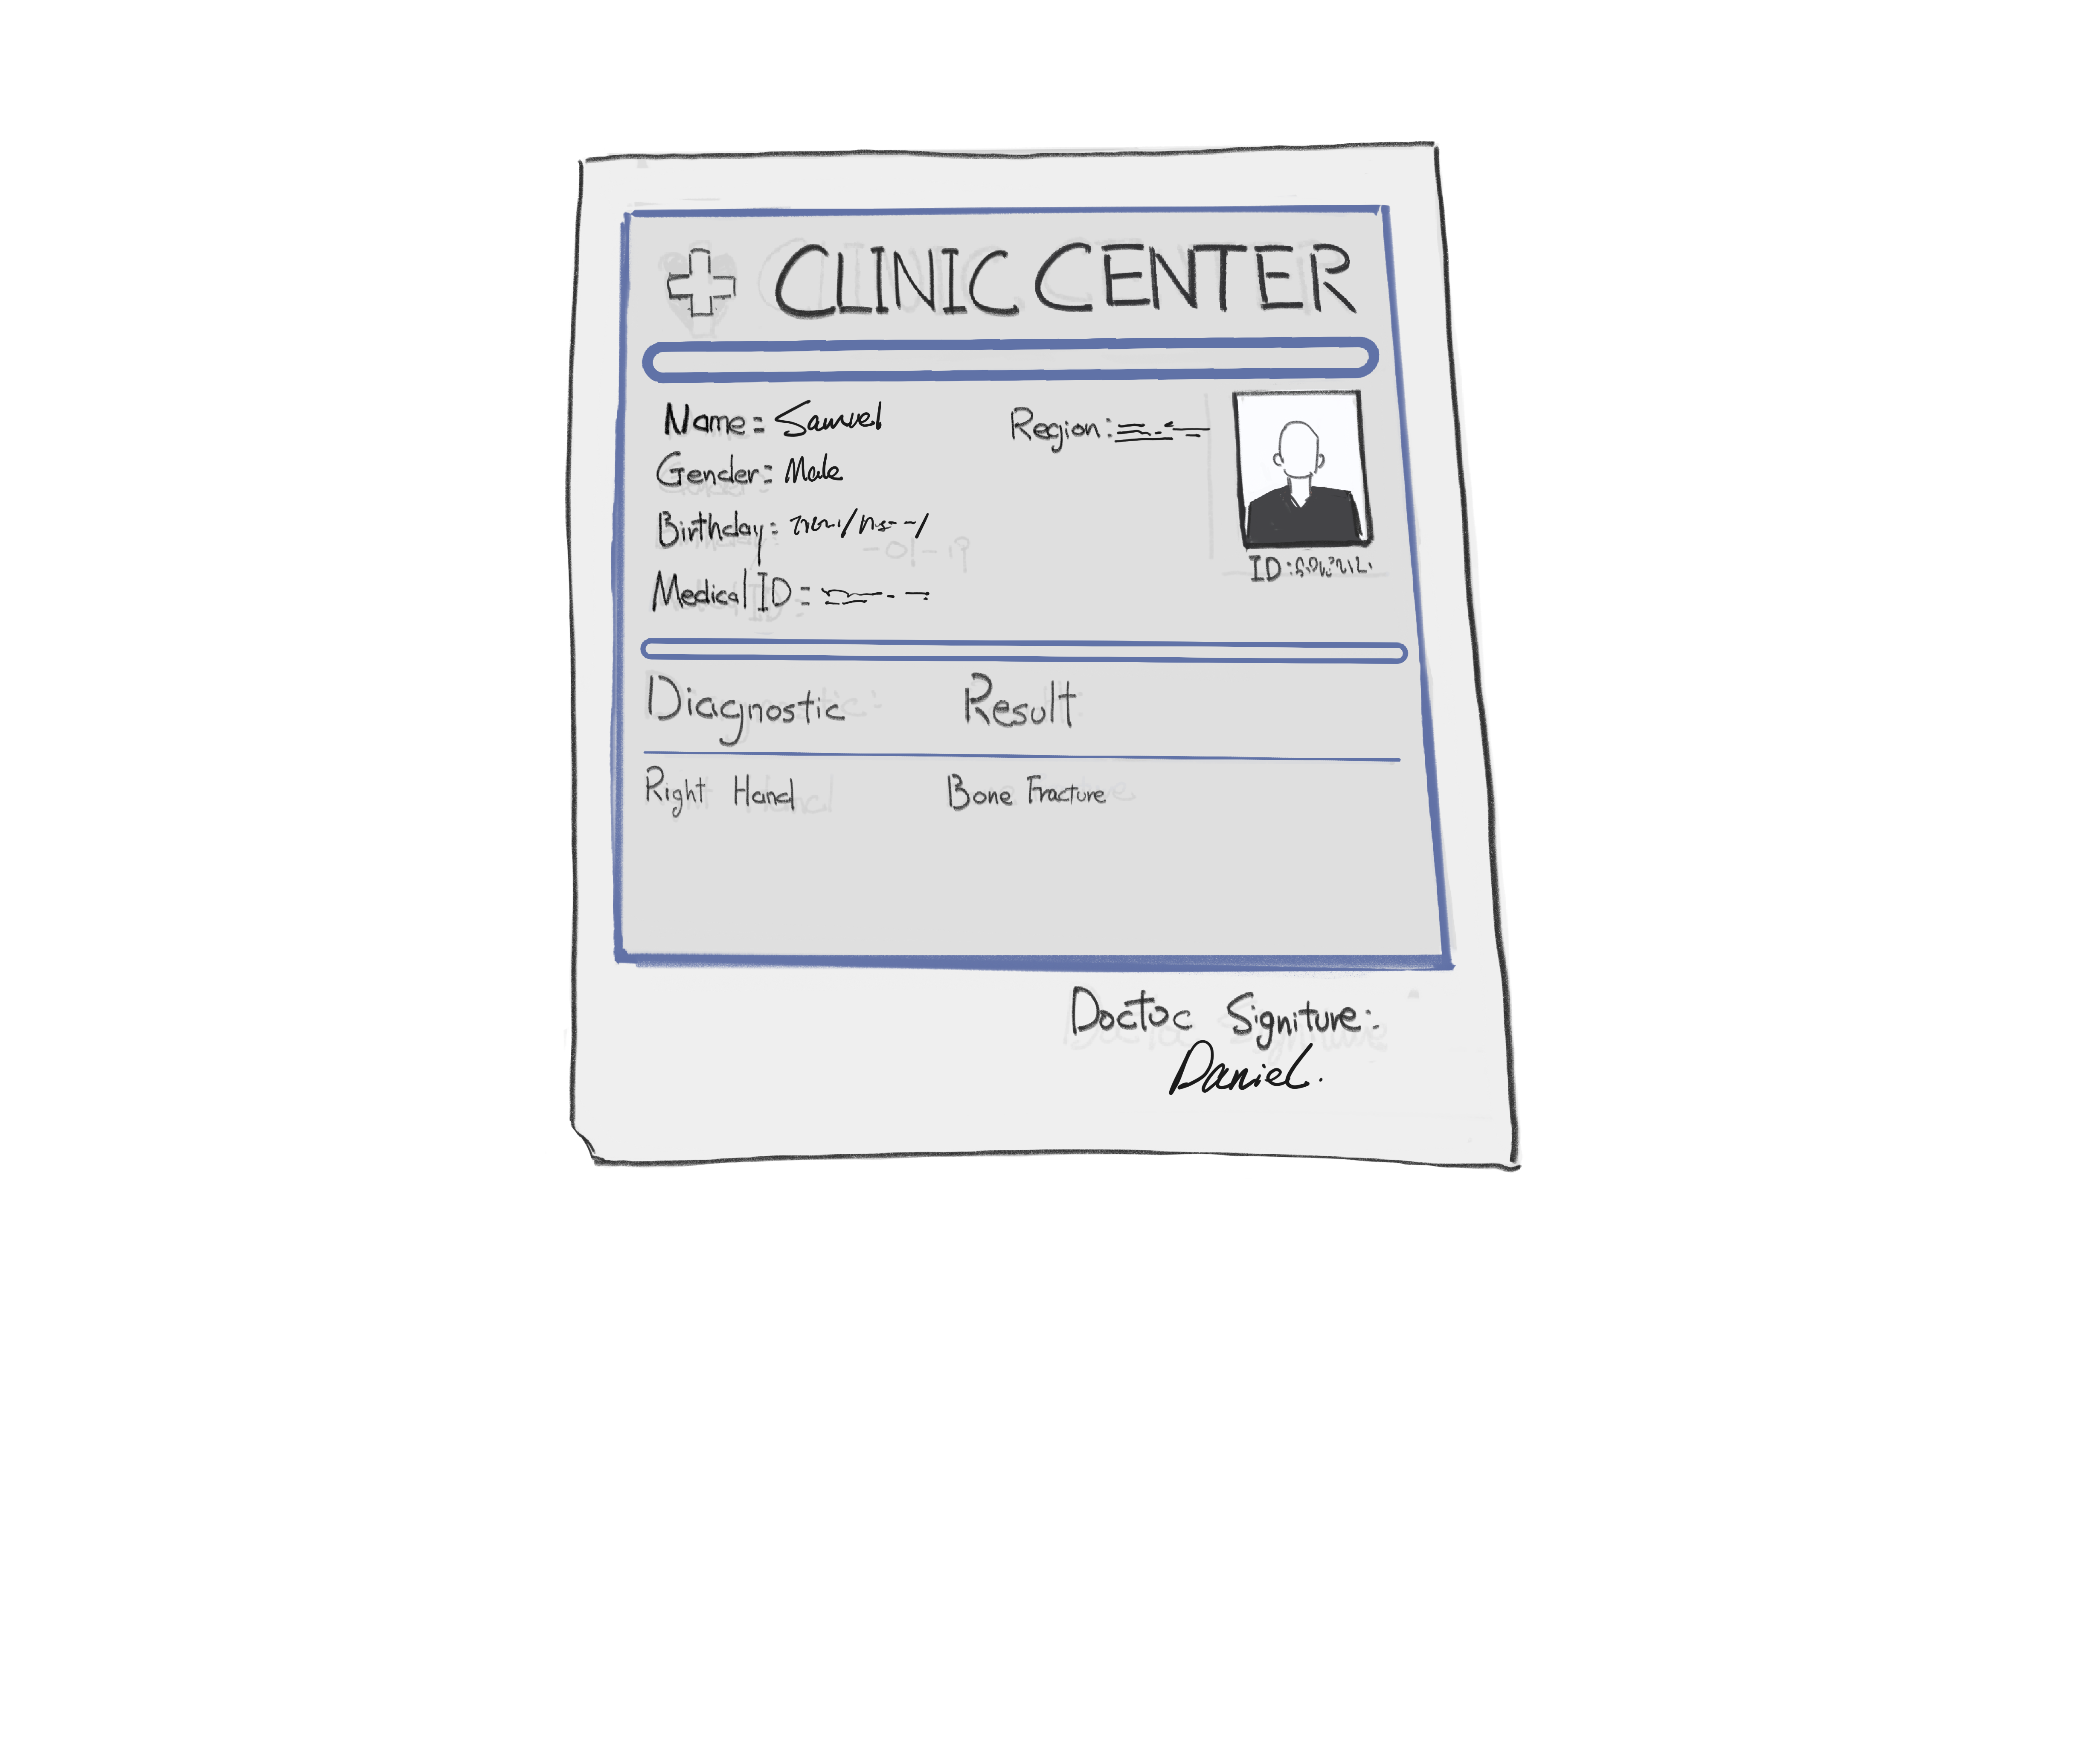 CLINIC CENTER
Name: Samuel
Region:
Gender: Male
Birthday:
Medical ID:
ID:
Diagnostic Result
Right Hand Bone Fracture
Doctoc Signiture:
Daniel.